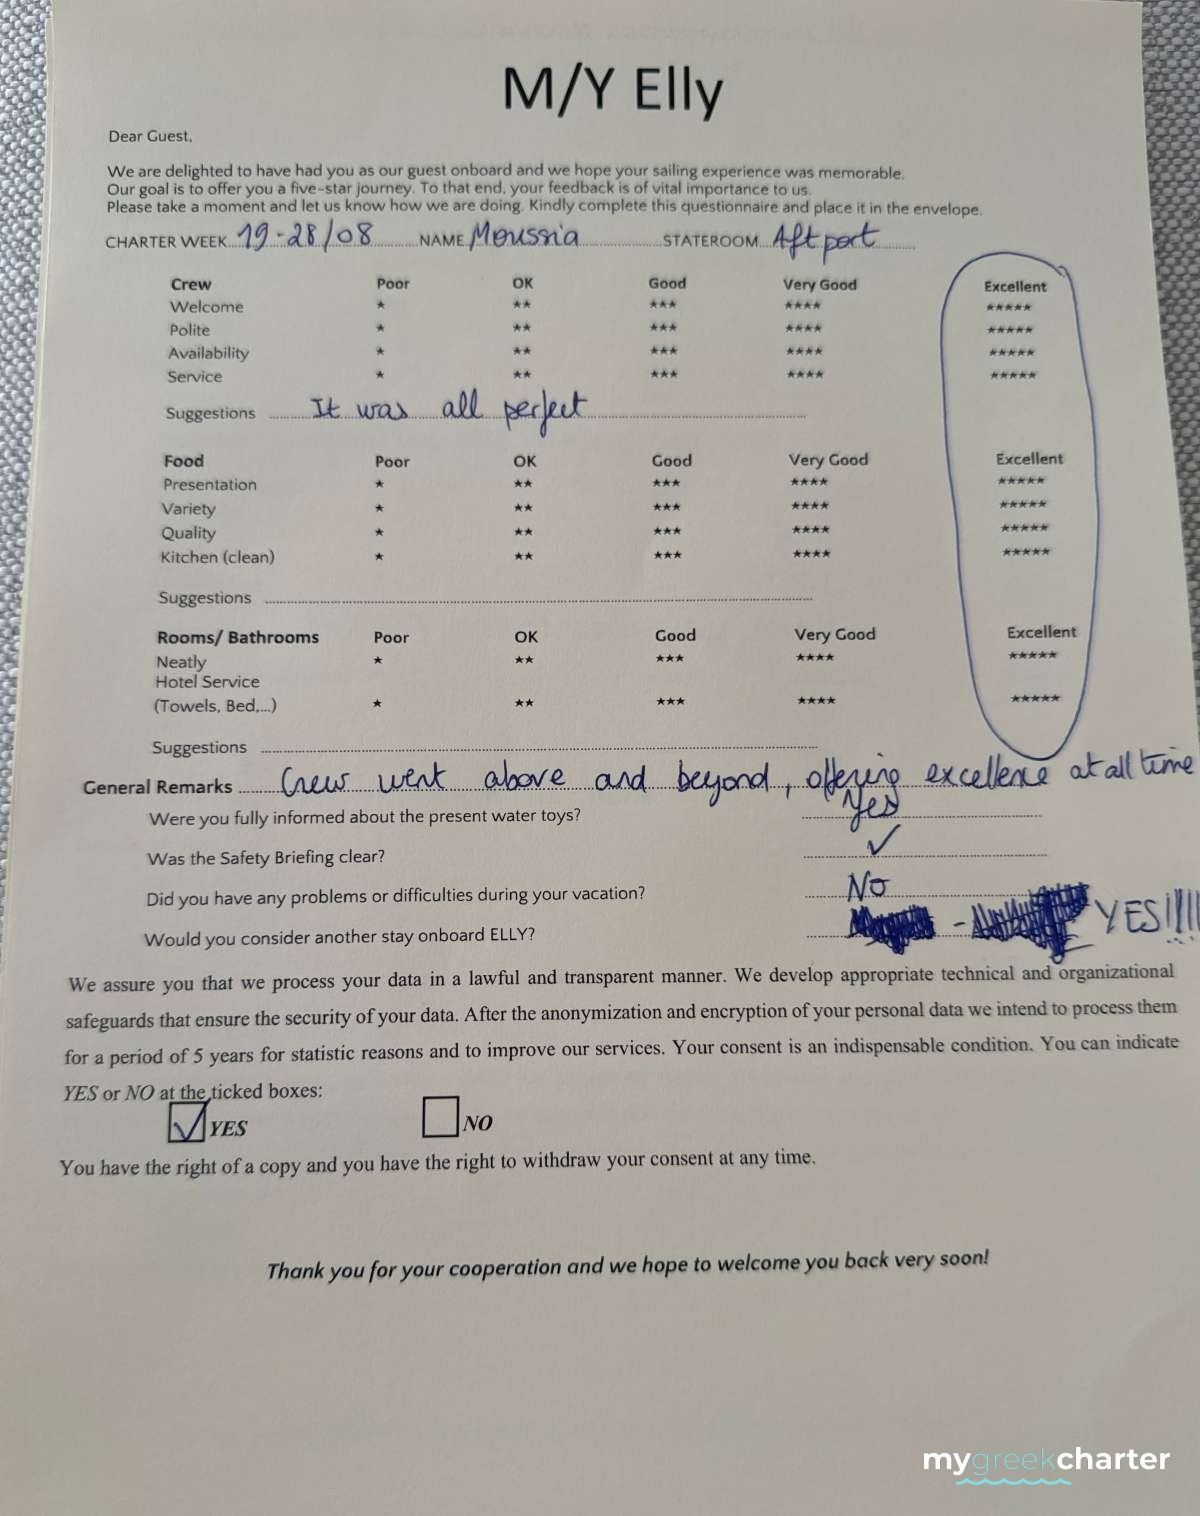 M/Y Elly
Dear Guest,
We are delighted to have had you as our guest onboard and we hope your sailing experience was memorable.
Our goal is to offer you a five-star journey. To that end, your feedback is of vital importance to us.
Please take a moment and let us know how we are doing. Kindly complete this questionnaire and place it in the envelope.
CHARTER WEEK 19-28/08 NAME Moussia STATEROOM Aft port
Crew Poor OK Good Very Good Excellent
Welcome * ** *** **** *****
Polite * ** *** **** *****
Availability * ** *** **** *****
Service * ** *** **** *****
Suggestions It was all perfect
Food Poor OK Good Very Good Excellent
Presentation * ** *** **** *****
Variety * ** *** **** *****
Quality * ** *** **** *****
Kitchen (clean) * ** *** **** *****
Suggestions
Rooms/ Bathrooms Poor OK Good Very Good Excellent
Neatly * ** *** **** *****
Hotel Service
(Towels, Bed,...) * ** *** **** *****
Suggestions
General Remarks Crew went above and beyond, offering excellence at all time
Were you fully informed about the present water toys? Yes
Was the Safety Briefing clear? ✓
Did you have any problems or difficulties during your vacation? No
Would you consider another stay onboard ELLY? - YES!!!!
We assure you that we process your data in a lawful and transparent manner. We develop appropriate technical and organizational
safeguards that ensure the security of your data. After the anonymization and encryption of your personal data we intend to process them
for a period of 5 years for statistic reasons and to improve our services. Your consent is an indispensable condition. You can indicate
YES or NO at the ticked boxes:
✓ YES NO
You have the right of a copy and you have the right to withdraw your consent at any time.
Thank you for your cooperation and we hope to welcome you back very soon!
mygreekcharter